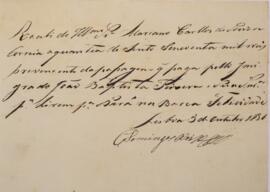 Recebi do Illmo Sr Mariano Carlos de Souza
Correia a quantia de Sento Secenta mil reis
proveniente da pasagem q̃ paga pello Imi
grado João Baptista Pereira
pa hirem pa Pará na Barca Felicidade
Lisboa 3 de Outubro 183
Domingos